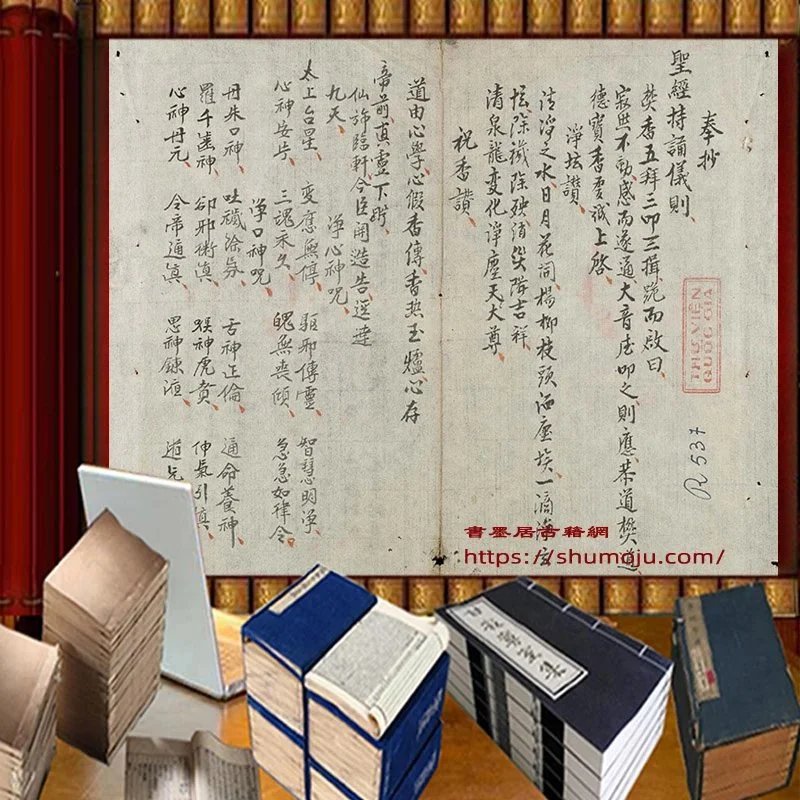 奉抄
聖經持誦儀則
焚香五拜三叩三揖跪而啟曰
寂然不動感而遂通大音叩之則應恭道焚道
德寶香虔誠上啓
淨坛讃
清淨之水日月花同楊柳枝頭洒塵埃一滴
坛除穢除殃消災降吉祥
清泉龍變化淨塵天大尊
祝香讃
道由心學心假香傳香热玉爐心存
帝前真靈下盻
仙斾臨軒令臣開造告逕達
九天 淨心神咒
太上台星 變應無停 驅邪傳靈 智慧明淨
心神安步 三魂永久 魄無喪傾 急急如律令
淨口神咒
丹朱口神 吐穢洽氛 舌神正倫 通命養神
羅千齒神 卻邪術眞 猴神虎賁 仲氣引眞
心神丹元 令帝通眞 思神鍊液
THƯ VIỆN
QUỐC GIA
R 537
書墨居古籍網
https://shumoju.com/